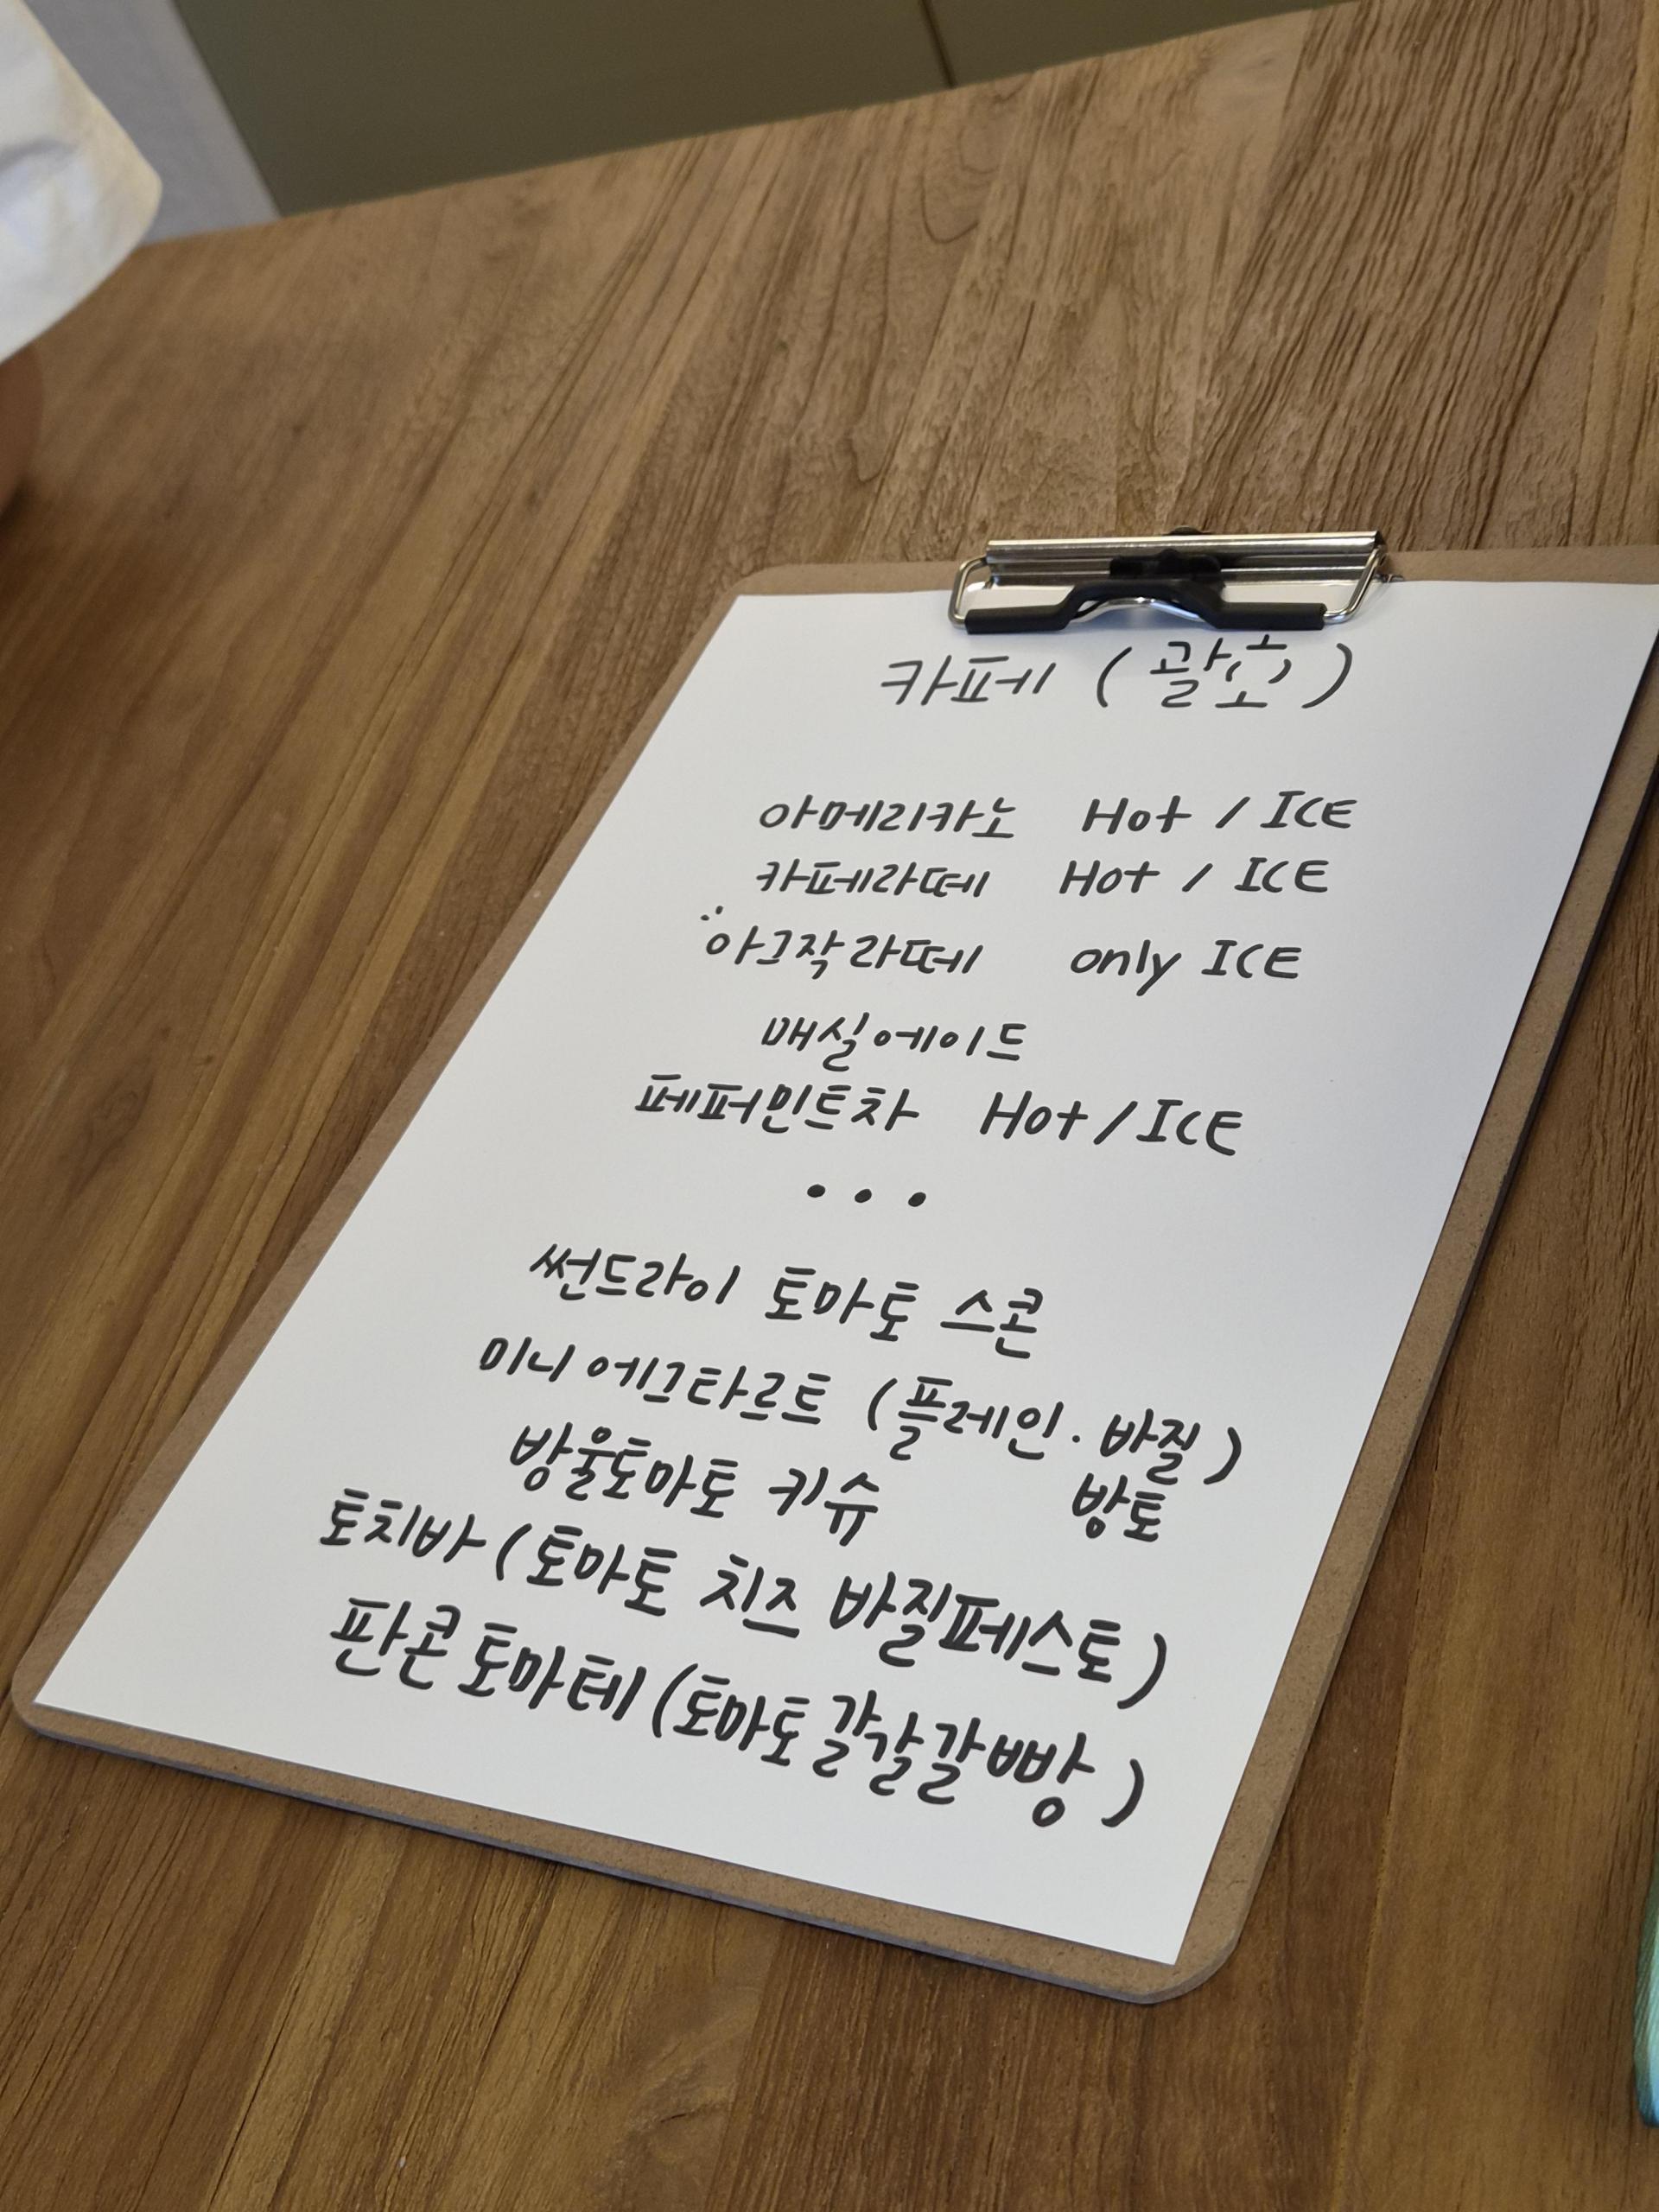 카페 (괄호)
아메리카노 Hot / ICE
카페라떼 Hot / ICE
아그작라떼 only ICE
매실에이드
페퍼민트차 Hot / ICE
• • •
썬드라이 토마토 스콘
미니 에그타르트 (플레인 · 바질)
방토
방울토마토 키슈
토치바 (토마토 치즈 바질페스토)
판콘토마테 (토마토갈갈갈빵)